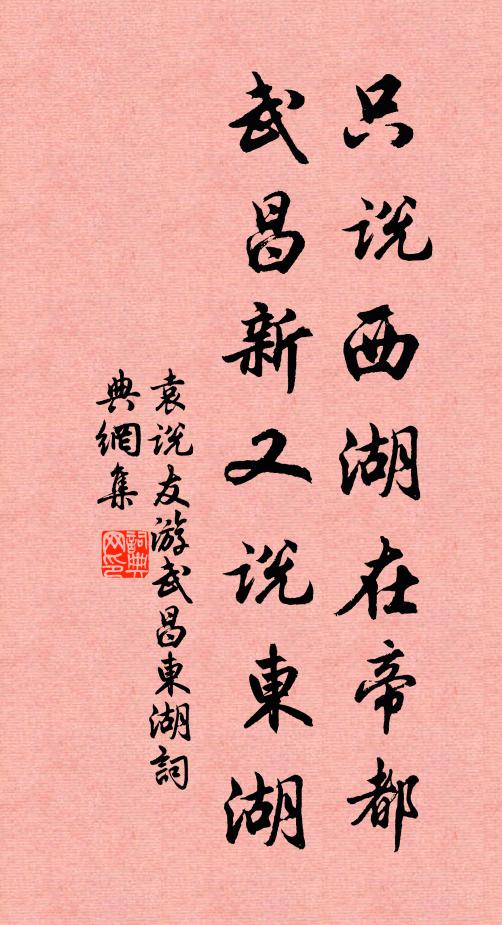 只说西湖在帝都
武昌新又说東湖
袁说友游武昌東湖詞
典網集
詞典網印